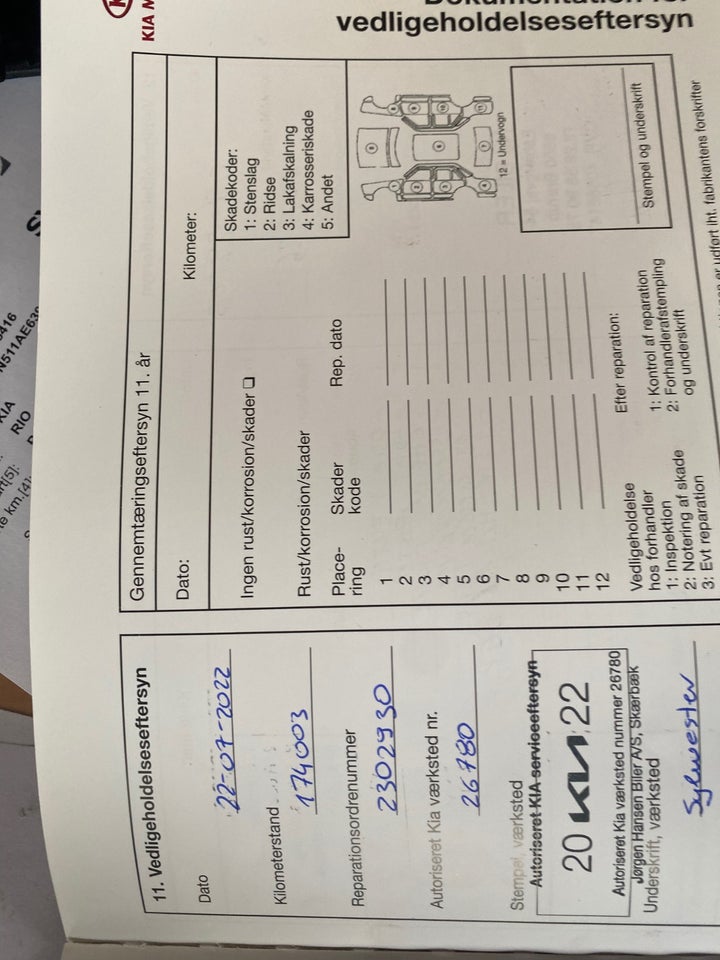 KIA M
vedligeholdelseseftersyn
11. Vedligeholdelseseftersyn
Dato
22-07-2022
Kilometerstand
174003
Reparationsordrenummer
2302930
Autoriseret Kia værksted nr.
26780
Stempel, værksted
Autoriseret KIA serviceeftersyn
20 KIA 22
Autoriseret Kia værksted nummer 26780
Jørgen Hansen Biler A/S, Skærbæk
Underskrift, værksted
Sylwester
Gennemtæringseftersyn 11. år
Dato:
Kilometer:
Ingen rust/korrosion/skader
Rust/korrosion/skader
Skadekoder:
1: Stenslag
2: Ridse
3: Lakafskalning
4: Karrosseriskade
5: Andet
Place-
ring
Skader
kode
Rep. dato
1
2
3
4
5
6
7
8
9
10
11
12
12 = Undervogn
Vedligeholdelse
hos forhandler
1: Inspektion
2: Notering af skade
3: Evt reparation
Efter reparation:
1: Kontrol af reparation
2: Forhandlerafstempling
og underskrift
Stempel og underskrift
er udført iht. fabrikantens forskrifter
416
N511AE63
KIA
RIO
e km.[4]: